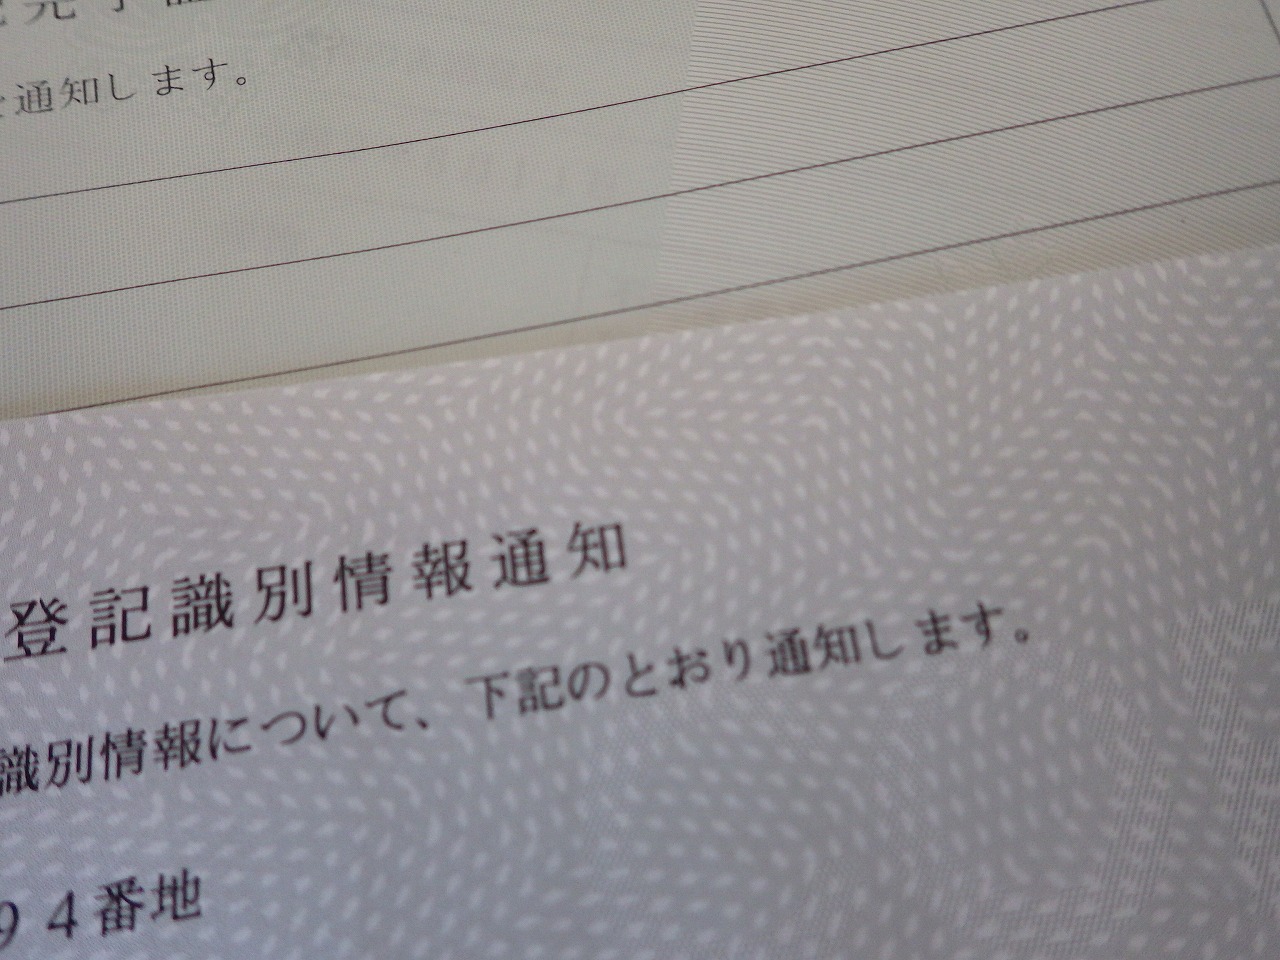 完了証
通知します。
登記識別情報通知
識別情報について、下記のとおり通知します。
94番地